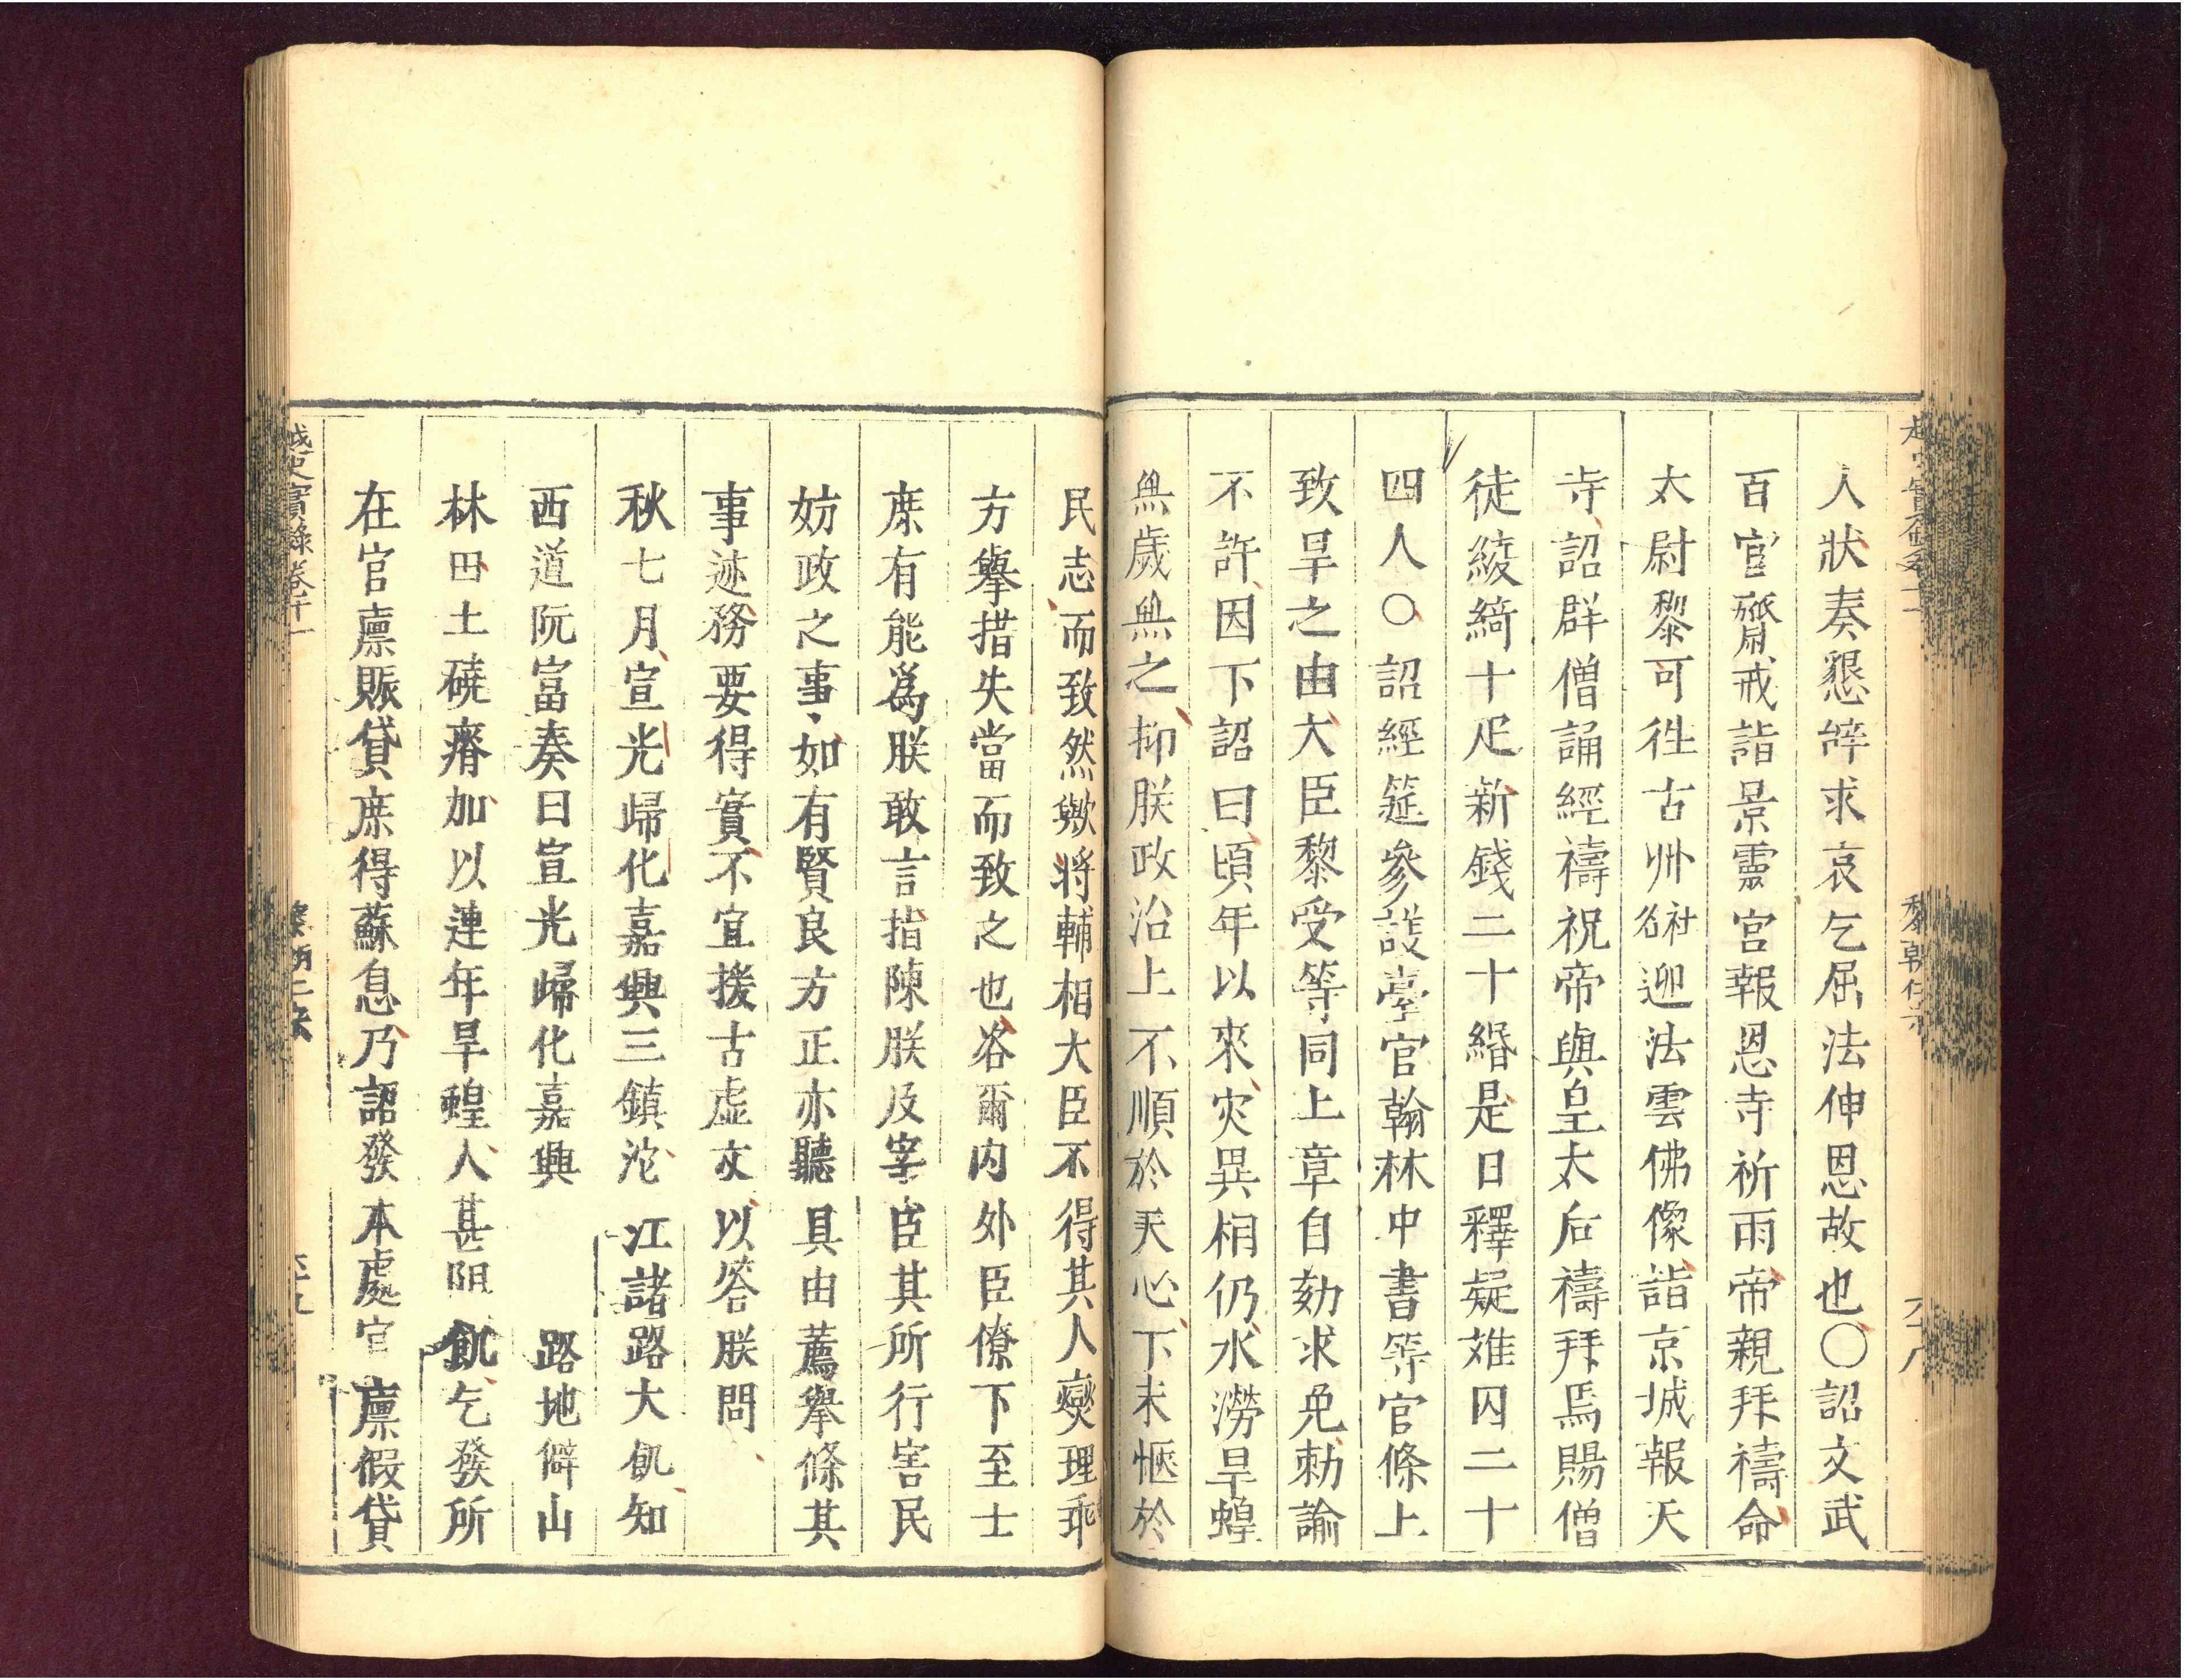 人狀奏懇辝求哀乞屈法伸恩故也〇詔文武
百官齋戒詣景靈宮報恩寺祈雨帝親拜禱命
太尉黎可徃古州社名迎法雲佛像詣京城報天
寺詔群僧誦經禱祝帝與皇太后禱拜焉賜僧
徒綾綺十疋新錢二十緡是日釋疑难囚二十
四人〇詔經筵參議臺官翰林中書等官條上
致旱之由大臣黎受等同上章自劾求免勑諭
不許因下詔曰頃年以來灾異相仍水澇旱蝗
無歲無之抑朕政治上不順於天心下未愜於
民志而致然歟將輔相大臣不得其人燮理乖
方舉措失當而致之也咨爾內外臣僚下至士
庶有能爲朕敢言指陳朕及宰臣其所行害民
妨政之事如有賢良方正亦聽具由薦舉條其
事迹務要得實不宜援古虛文以答朕問
秋七月宣光歸化嘉興三鎮沱江諸路大飢知
西道阮富奏曰宣光歸化嘉興路地僻山
林田土磽瘠加以連年旱蝗人甚阻飢乞發所
在官廪賑貸庶得蘇息乃詔發本處官廪假貸
越史實錄卷十一
黎朝仁宗